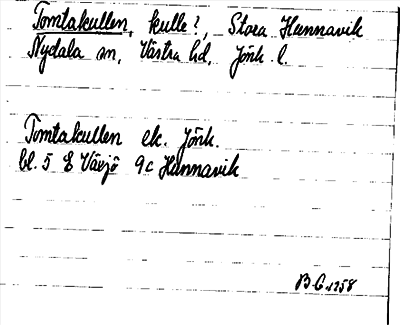 Tomtakullen, kulle?, Stora Hunnavik
Nydala sn, Västra hd, Jönk l.
Tomtakullen ek. Jönk.
bl. 5 E Växjö 9c Hunnavik
B.G. 1958